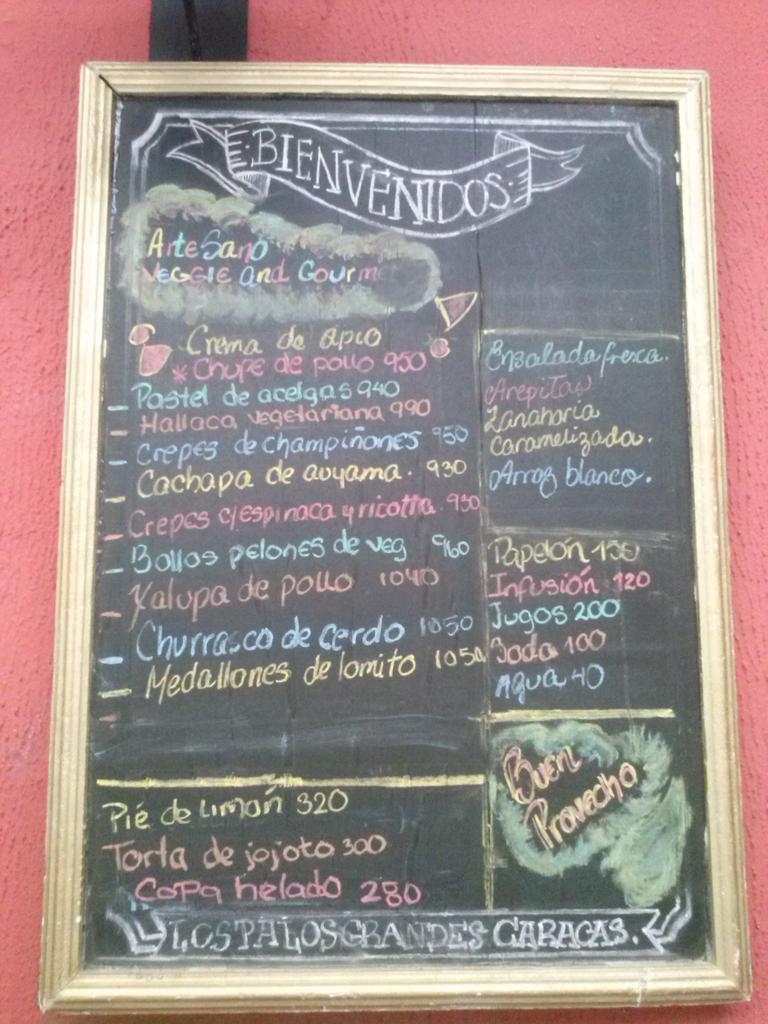 BIENVENIDOS
ArteSano
VEGGIE and Gourm
Crema de apio
* Chupe de pollo 950
- Pastel de acelgas 940
- Hallaca vegetariana 990
- Crepes de champiñones 950
- Cachapa de auyama. 930
- Crepes c/espinaca y ricotta 930
- Bollos pelones de veg 960
- Xalupa de pollo 1040
- Churrasco de cerdo 1050
- Medallones de lomito 1050
-
Pié de Limón 320
Torta de jojoto 300
Copa helado 280
Ensalada fresca.
Arepitas
Zanahoria
Caramelizada.
Arroz blanco.
Papelón 150
Infusión 120
Jugos 200
Soda 100
Agua 40
Buen
Provecho
LOS PALOS GRANDES CARACAS.